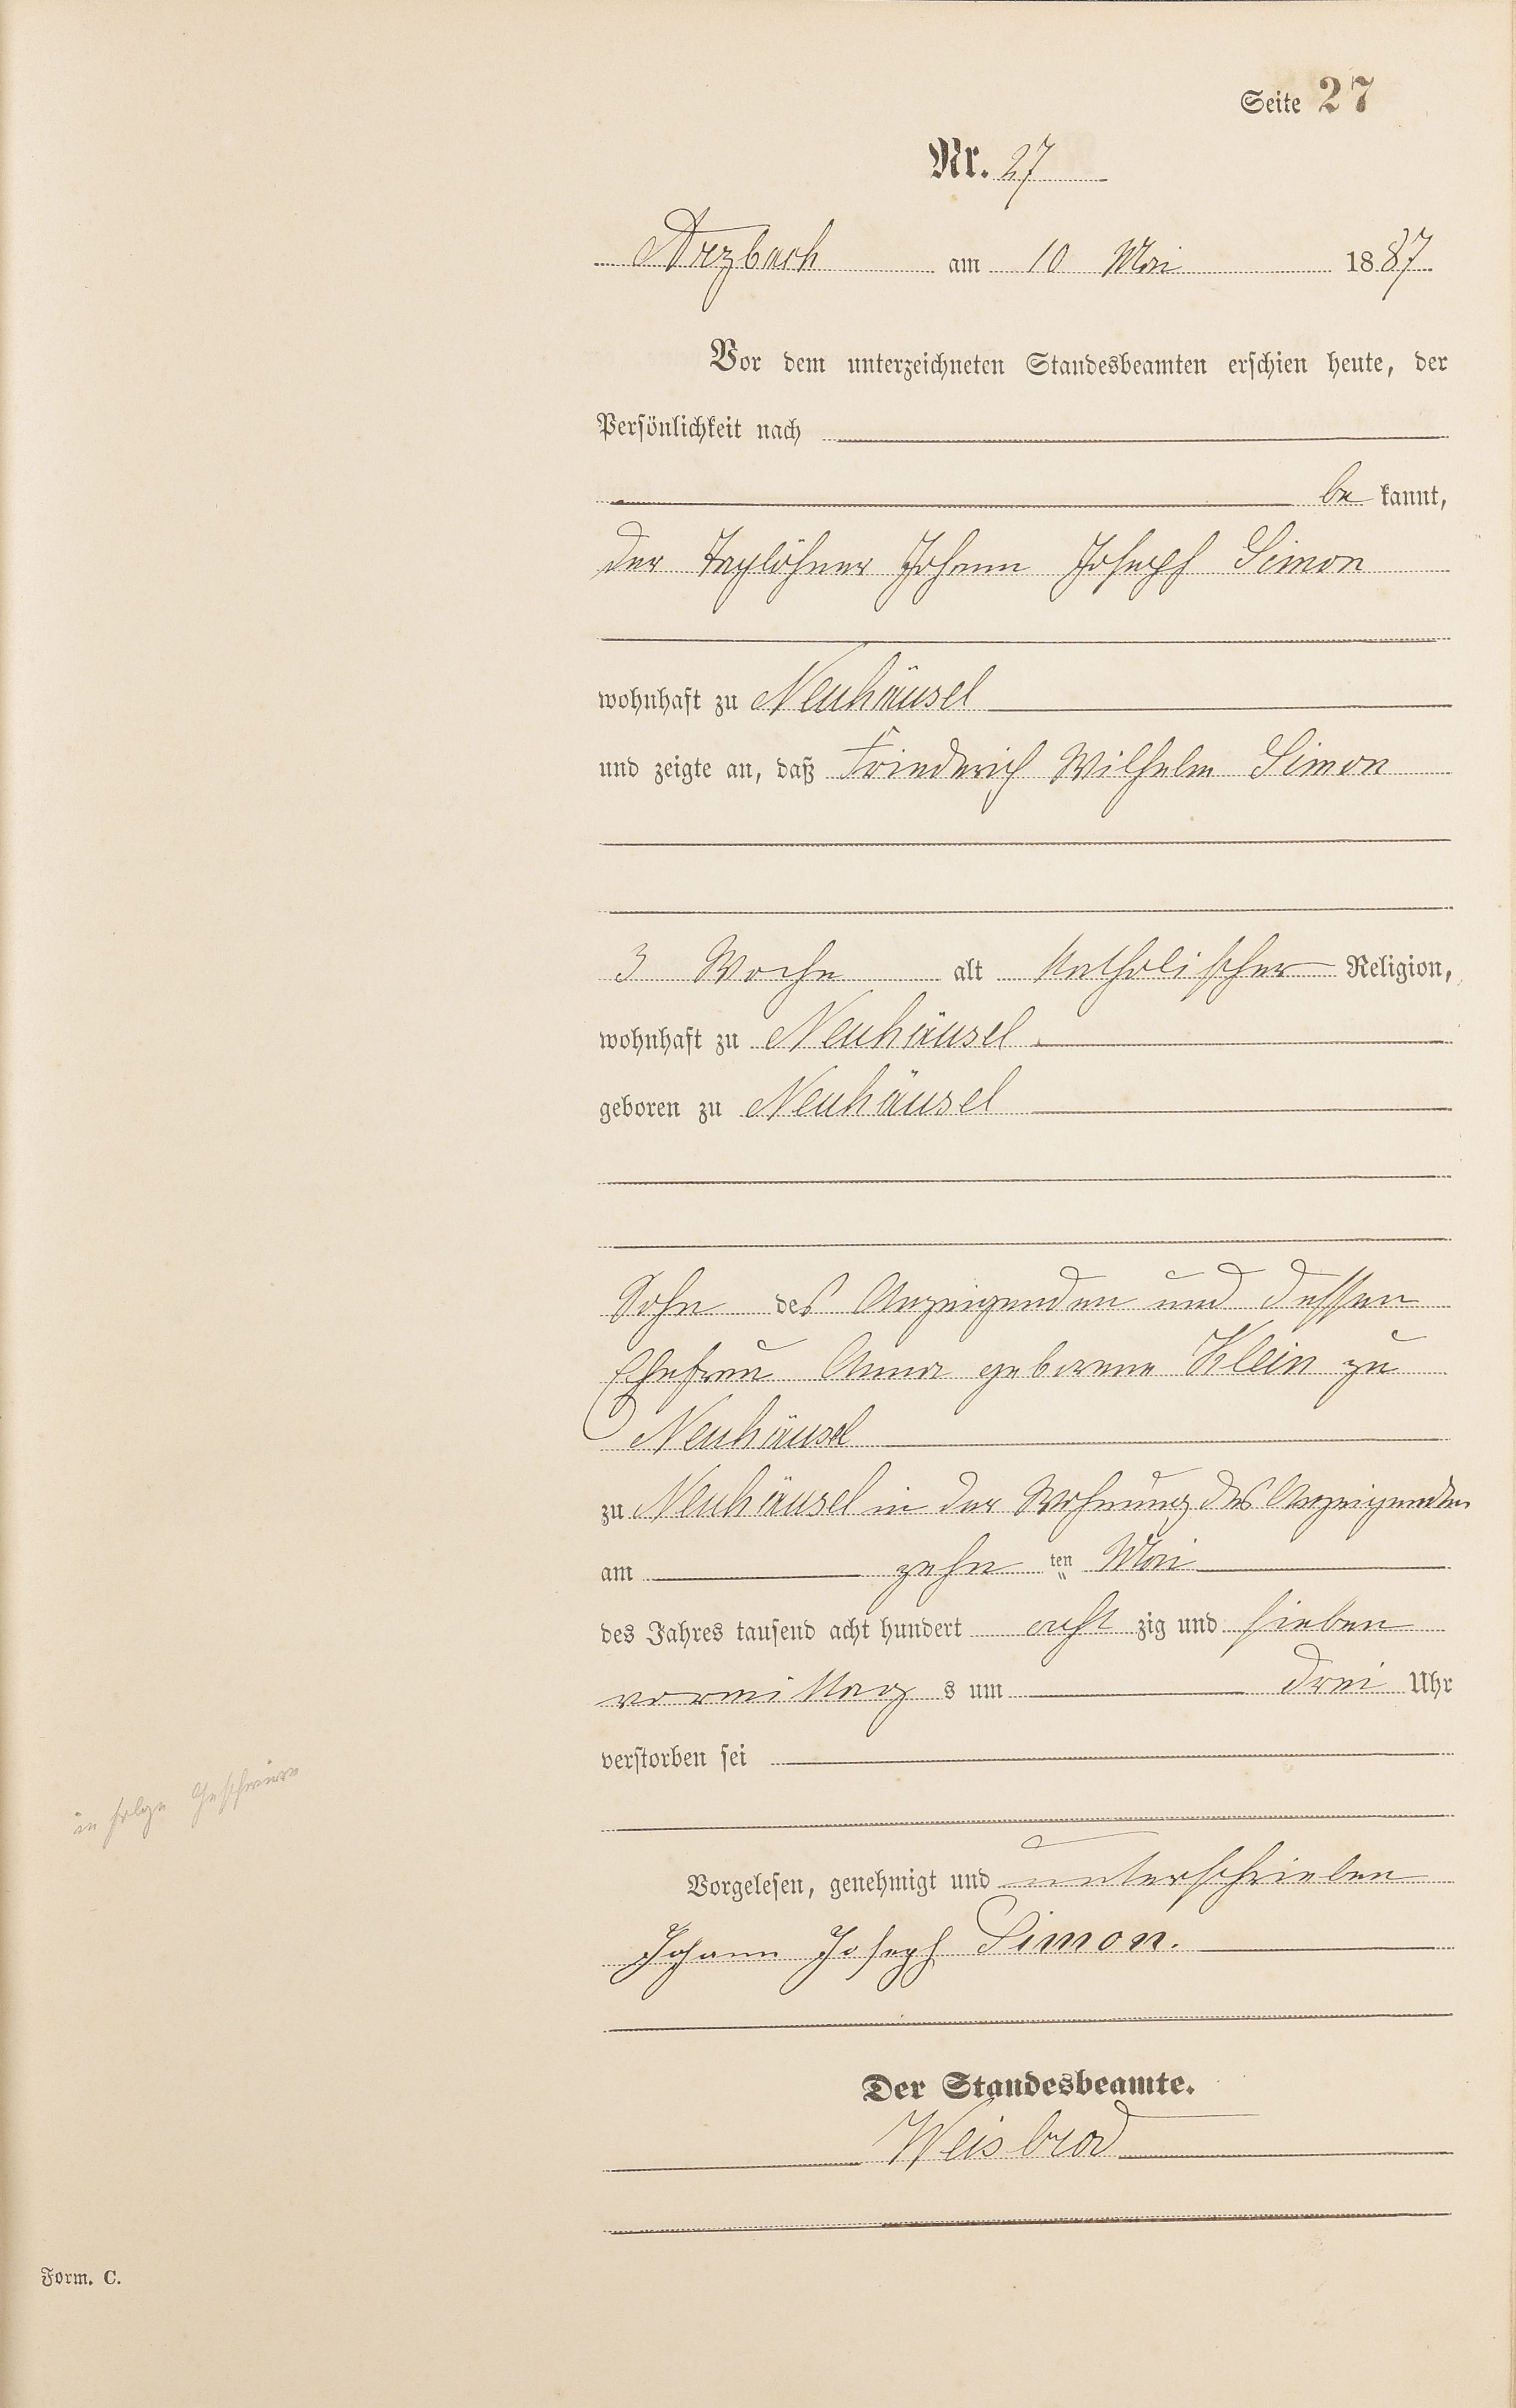 Seite 27
Nr. 27
Arzbach am 10 Mai 1887
Vor dem unterzeichneten Standesbeamten erschien heute, der
Persönlichkeit nach
be kannt,
der Taglöhner Johann Joseph Simon
wohnhaft zu Neuhäusel
und zeigte an, daß Friederich Wilhelm Simon
3 Woche alt katholischer Religion,
wohnhaft zu Neuhäusel
geboren zu Neuhäusel
Sohn des Anzeigenden und dessen
Ehefrau Anna geborene Klein zu
Neuhäusel
zu Neuhäusel in der Wohnung des Anzeigenden
am zehn ten Mai
des Jahres tausend acht hundert acht zig und sieben
vormittag s um drei Uhr
verstorben sei
in folge
Vorgelesen, genehmigt und unterschrieben
Johann Joseph Simon.
Der Standesbeamte.
Weisbrod
Form. C.